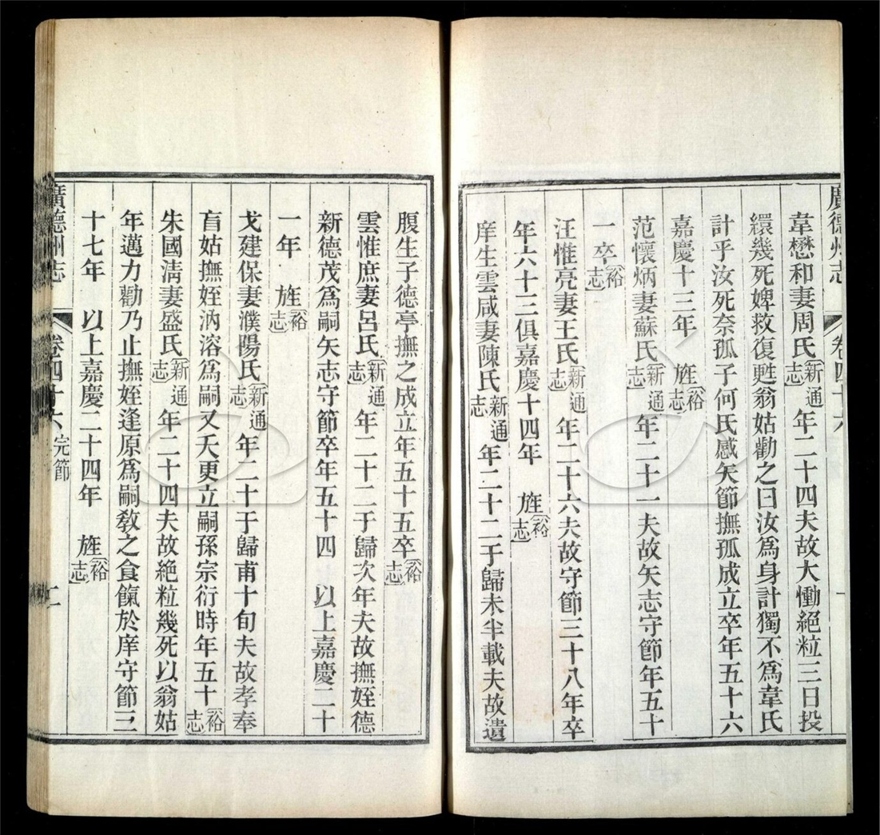 廣德州志 卷四十六
韋懋和妻周氏新通志年二十四夫故大慟絕粒三日投
繯幾死婢救復甦翁姑勸之曰汝爲身計獨不爲韋氏
計乎汝死奈孤子何氏感矢節撫孤成立卒年五十六
嘉慶十三年 旌裕志
范懷炳妻蘇氏新通志年二十一夫故矢志守節年五十
一卒裕志
汪惟亮妻王氏新通志年二十六夫故守節三十八年卒
年六十三俱嘉慶十四年 旌裕志
庠生雲咸妻陳氏新通志年二十二于歸未半載夫故遺
腹生子德亭撫之成立年五十五卒裕志
雲惟庶妻呂氏新通志年二十二于歸次年夫故撫姪德
新德茂爲嗣矢志守節卒年五十四 以上嘉慶二十
一年 旌裕志
戈建保妻濮陽氏新通志年二十于歸甫十旬夫故孝奉
盲姑撫姪汭溶爲嗣又夭更立嗣孫宗衍時年五十裕志
朱國清妻盛氏新通志年二十四夫故絕粒幾死以翁姑
年邁力勸乃止撫姪逢原爲嗣敎之食餼於庠守節三
十七年 以上嘉慶二十四年 旌裕志
廣德州志 卷四十六 完節 二